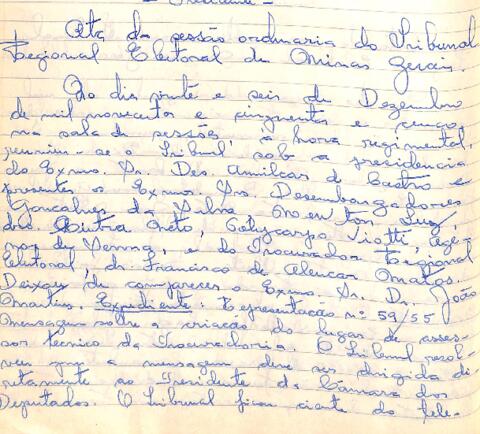 - Presidente -
Ata da sessão ordinaria do Tribunal
Regional Eleitoral de Minas Gerais.
Ao dia vinte e seis de Dezembro
de mil novecentos e cinquenta e cinco,
na sala de sessões, à hora regimental,
reuniu-se o Tribunal sob a presidencia
do Exmo. Sr. Des. Amilcar de Castro e
presentes os Exmos. Srs. Desembargadores
Gonçalves da Silva, Newton Luz,
drs. Dutra Neto, Policarpo Viotti, Age-
nor de Senna, e do Procurador Regional
Eleitoral, dr. Francisco de Alencar Matos.
Deixou de comparecer o Exmo. Sr. Dr. João
Martins. Expediente: Representação nº 59/55
Mensagem sobre a criação do lugar de asses-
sor técnico da Procuradoria. O Tribunal resol-
veu que a mensagem deve ser dirigida di-
retamente ao Presidente da Câmara dos
Deputados. O Tribunal ficou ciente do tele-